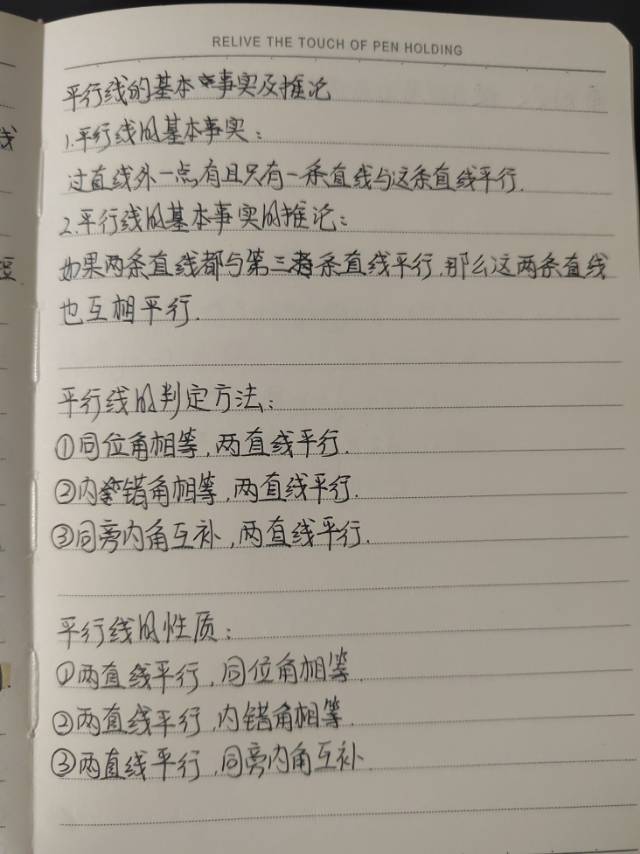 RELIVE THE TOUCH OF PEN HOLDING
平行线的基本事实及推论
1.平行线的基本事实：
过直线外一点,有且只有一条直线与这条直线平行.
2.平行线的基本事实的推论：
如果两条直线都与第三条直线平行,那么这两条直线
也互相平行.
平行线的判定方法：
①同位角相等,两直线平行.
②内错角相等,两直线平行.
③同旁内角互补,两直线平行.
平行线的性质：
①两直线平行,同位角相等.
②两直线平行,内错角相等.
③两直线平行,同旁内角互补.